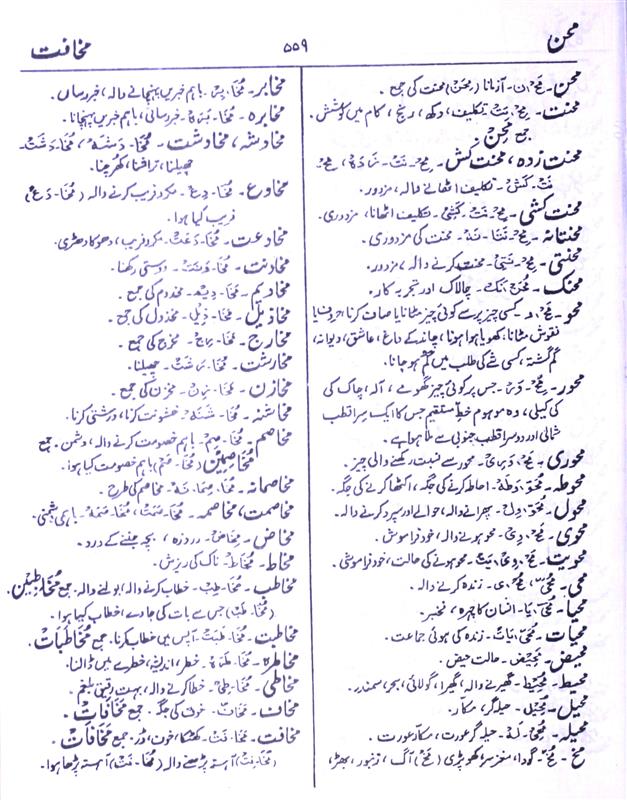 محن
۵۵۹
مخافت
محن۔ مِحَ۔ن۔ آزمانا (مِحَن) محنت کی جمع۔
محنت۔ مِحْ۔نَت۔ تکلیف، دکھ، رنج، کام میں کوشش۔
جمع مِحَن۔
محنت زدہ، محنت کش۔ مِحْ۔نَت۔
نَت۔کَش۔ تکلیف اٹھانے والا، مزدور۔
محنت کشی۔ مِحْ۔نَت۔کَشی۔ تکلیف اٹھانا، مزدوری۔
محنتانہ۔ مِحْ۔نَتَا۔نَہ۔ محنت کی مزدوری۔
محنتی۔ مِحْ۔نَتی۔ محنت کرنے والا، مزدور۔
محنک۔ چالاک اور تجربہ کار۔
محو۔ کسی چیز پر سے کوئی چیز مٹانا یا صاف کرنا، حروف یا
نقوش مٹانا، کھویا ہوا ہونا، چاند کے داغ، عاشق، دیوانہ،
گم گشتہ، کسی شے کی طلب میں گم ہو جانا۔
محور۔ مِحْ۔وَر۔ جس پر کوئی چیز گھومے، آلہ، چاک کی
کی کیلی، وہ موہوم خط مستقیم جس کا ایک سرا قطب
شمالی اور دوسرا قطب جنوبی سے ملا ہوا ہے۔
محوری۔ مِحْ۔وَری۔ محور سے نسبت رکھنے والی چیز۔
محوطہ۔ احاطہ کرنے کی جگہ، اکٹھا کرنے کی جگہ۔
محول۔ پھرانے والہ، حوالے اور سپرد کرنے والہ۔
محوی۔ مَحْ۔وی۔ محو ہونے والہ، خود فراموش۔
محویت۔ محو ہونے کی حالت، خود فراموشی۔
محی۔ زندہ کرنے والہ۔
محیا۔ انسان کا چہرہ،
محیات۔ زندہ کی ہوئی جماعت۔
محیض۔ مَحِیْض۔ حالتِ حیض۔
محیط۔ مُحِیْط۔ گھیرنے والہ، گھیرا، گولائی، بحر، سمندر۔
محیل۔ مُحِیْل۔ حیلہ گر، مکار۔
محیلہ۔ مُحِیْ۔لَہ۔ حیلہ گر عورت، مکار عورت۔
مخ۔ مُخ۔ گودا، مغز سر، کھوپڑی (مَخ) آگ، زنبور، بھڑ،
مخابر۔ مُخَا۔بِر۔ باہم خبریں پہنچانے والہ، خبر رساں۔
مخابرہ۔ مُخَا۔بَرَہ۔ خبر رسانی، باہم خبریں پہنچانا۔
مخادشہ، مخادشت۔ مُخَا۔دَشَہ، مُخَا۔دَشَت۔
چھیلنا، تراشنا، کھرچنا۔
مخاوع۔ مُخَا۔دِع۔ مکر و فریب کرنے والہ (مُخَا۔دَع)
فریب کیا ہوا۔
مخادعت۔ مُخَا۔دَعَت۔ مکر و فریب، دھوکا دھڑی۔
مخادنت۔ مُخَا۔دَنَت۔ دوستی رکھنا۔
مخادیم۔ مَخَا۔دِیْم۔ مخدوم کی جمع۔
مخاذیل۔ مَخَا۔ذِیْل۔ مخذول کی جمع۔
مخارج۔ مَخَا۔رِج۔ مخرج کی جمع۔
مخارشت۔ مُخَا۔رَشَت۔ چھیلنا۔
مخازن۔ مَخَا۔زِن۔ مخزن کی جمع۔
مخاشنہ۔ مُخَا۔شَنَہ۔ خشونت کرنا، درشتی کرنا۔
مخاصم۔ مُخَا۔صِم۔ باہم خصومت کرنے والہ، دشمن۔ جمع
مُخاصِمِین (مُخَا۔صَم) باہم خصومت کیا ہوا۔
مخاصمانہ۔ مُخَا۔صِمَا۔نَہ۔ مخاصم کی طرح۔
مخاصمت، مخاصمہ۔ مُخَا۔صَمَت، مُخَا۔صَمَہ۔ باہمی دشمنی۔
مخاض۔ مَخَاض۔ دردِ زہ، بچہ جننے کے درد۔
مخاط۔ مُخَاط۔ ناک کی ریزش۔
مخاطب۔ مُخَا۔طِب۔ خطاب کرنے والہ، بولنے والہ۔ جمع مُخَاطِبِیْن۔
(مُخَا۔طَب) جس سے بات کی جاوے، خطاب کیا ہوا۔
مخاطبت۔ مُخَا۔طَبَت۔ آپس میں خطاب کرنا۔ جمع مُخَاطَبَات۔
مخاطرہ۔ مُخَا۔طَرَہ۔ خطر، اندیشہ، خطرے میں ڈالنا۔
مخاطی۔ مُخَا۔طی۔ خطا کرنے والہ، بہت رقیق بلغم۔
مخاف۔ مَخَاف۔ خوف کی جگہ۔ جمع مَخَافَات۔
مخافت۔ مَخَا۔فَت۔ کھٹکا، خوف، ڈر۔ جمع مَخَافَات۔
(مُخَا۔فِت) آہستہ پڑھنے والہ (مُخَا۔فَت) آہستہ پڑھا ہوا۔